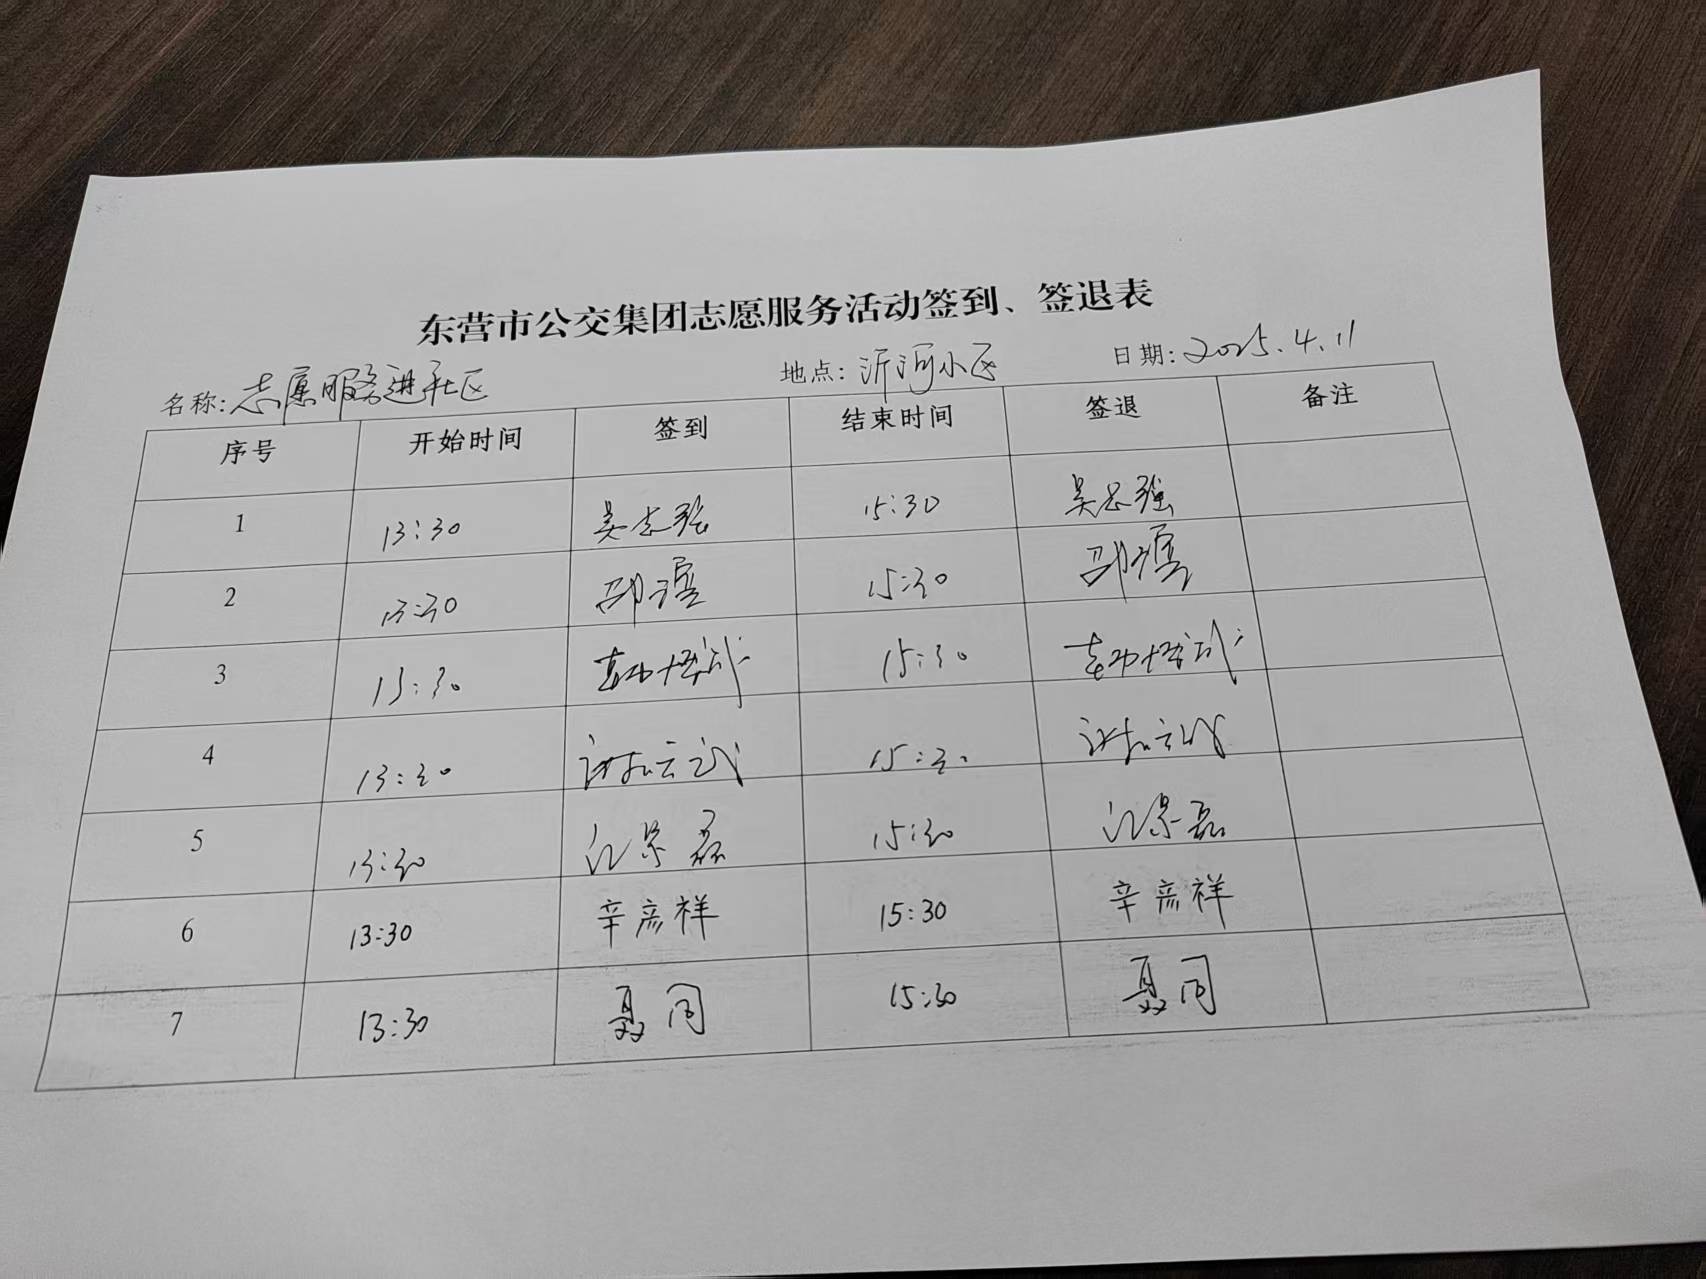 东营市公交集团志愿服务活动签到、签退表
名称:志愿服务进社区 地点:沂河小区 日期:2025.4.11
序号 开始时间 签到 结束时间 签退 备注
1 13:30 吴志强 15:30 吴志强
2 13:30 15:30
3 13:30 15:30
4 13:30 15:30
5 13:30 15:30
6 13:30 辛彦祥 15:30 辛彦祥
7 13:30 聂同 15:30 聂同